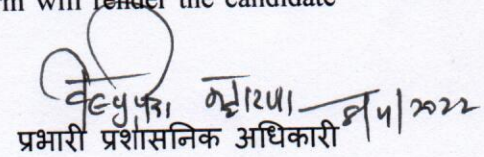 rm will render the candidate
8/4/2022
प्रभारी प्रशासनिक अधिकारी